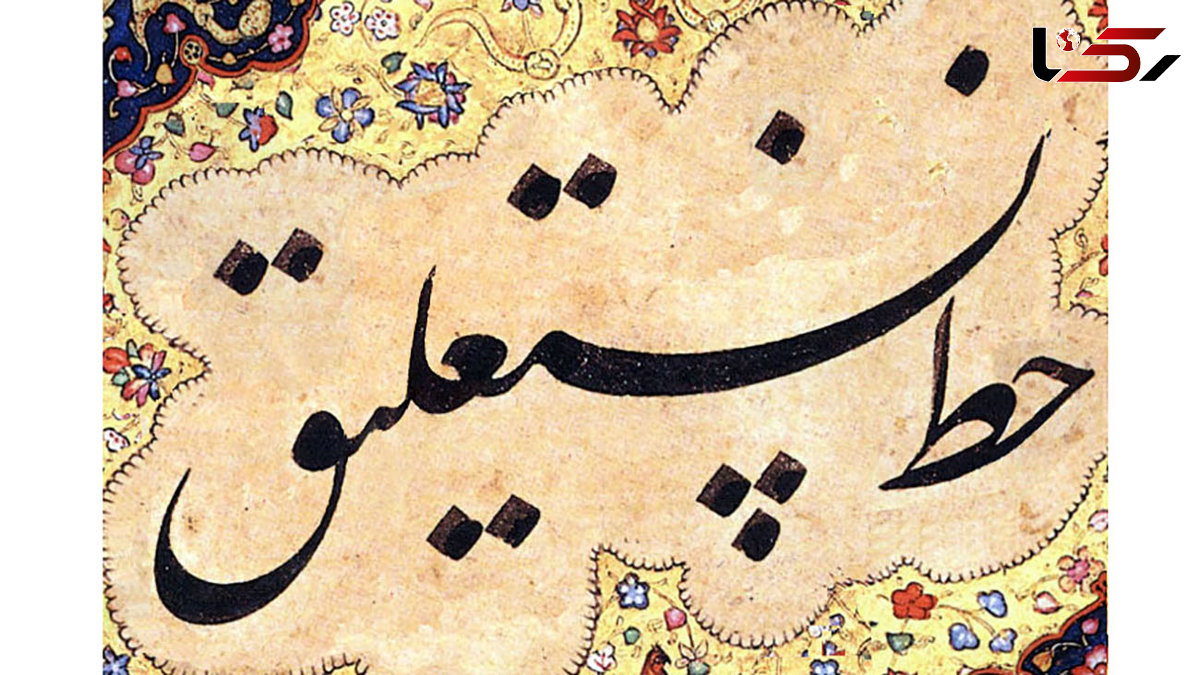 رکنا
خط نستعلیق